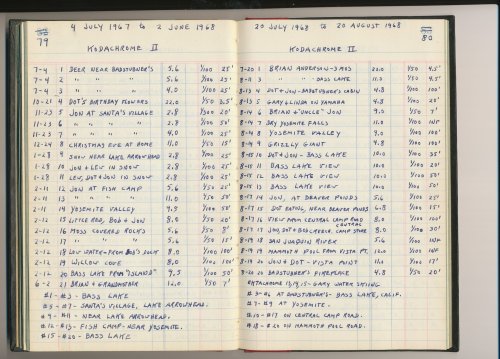 4 JULY 1967 to 2 JUNE 1968
79
KODACHROME II
7-4 1 DEER NEAR BADSTUBNER'S 5.6 1/100 25'
7-4 2 " " " 5.6 1/100 25'
7-4 3 " " " 4.0 1/100 25'
10-21 4 DOT'S BIRTHDAY FLOWERS 22.0 1/50 3.5'
11-23 5 JON AT SANTA'S VILLAGE 2.8 1/100 20'
11-23 6 " " " " 5.6 1/100 50'
11-23 7 " " " " 4.0 1/100 25'
12-24 8 CHRISTMAS EVE AT HOME 11.0 1/50 15'
1-28 9 SNOW NEAR LAKE ARROWHEAD 2.8 1/100 25'
1-28 10 JON & LEV IN SNOW 2.8 1/100 25'
1-28 11 LEV, DOT & JON IN SNOW 2.8 1/100 25'
2-11 12 JON AT FISH CAMP 5.6 1/50 25'
2-11 13 " " " " 11.0 1/50 25'
2-11 14 YOSEMITE VALLEY 4.5 1/100 50'
2-12 15 LITTLE ROD, BOB & JON 8.0 1/50 20'
2-12 16 MOSS COVERED ROCKS 5.6 1/50 8'
2-12 17 " " " 5.6 1/50 15'
2-12 18 LOW WATER - FROM BOB'S DOCK 8.0 1/100 100'
2-12 19 WILLOW COVE 8.0 1/100 100'
2-12 20 BASS LAKE FROM "ISLAND" 9.5 1/100 50'
6-2 21 BRIAN & GRANDMOTHER 12.0 1/50 7'
#1 - #3 - BASS LAKE
#5 - #7 - SANTA'S VILLAGE, LAKE ARROWHEAD.
#9 - #11 - NEAR LAKE ARROWHEAD.
#12 - #13 - FISH CAMP - NEAR YOSEMITE.
#15 - #20 - BASS LAKE
20 JULY 1968 to 20 AUGUST 1968
80
KODACHROME II
7-20 1 BRIAN ANDERSON - 3 MOS 22.0 1/50 4.5'
8-11 3 " " - BASS LAKE 11.0 1/50 4.5'
8-13 4 DOT & JON - BADSTUBNER'S CABIN 4.8 1/100 100'
8-13 5 GARY & LINDA ON YAMAHA 4.8 1/100 20'
8-14 6 BRIAN & "UNCLE" JON 9.0 1/50 7'
8-14 7 DRY YOSEMITE FALLS 11.0 1/100 INF
8-14 8 YOSEMITE VALLEY 9.0 1/100 100'
8-14 9 GRIZZLY GIANT 4.8 1/100 100'
8-15 10 DOT & JON - BASS LAKE 10.0 1/100 35'
8-15 11 BASS LAKE VIEW 10.0 1/100 25'
8-15 12 BASS LAKE VIEW 1/100 50'
8-15 13 BASS LAKE VIEW 10.0 1/100 50'
8-17 14 JON, AT BEAVER PONDS 5.6 1/100 25'
8-17 15 DOT EATING, NEAR BEAVER PONDS 6.8 1/100 15'
8-17 16 VIEW FROM CENTRAL CAMP ROAD 8.0 1/100 100'
8-17 17 JON, DOT & BOB & REXIE, CENTRAL CAMP STORE 8.0 1/100 30'
8-19 18 SAN JOAQUIN RIVER 5.6 1/100 INF
8-19 19 MAMMOTH POOL FROM VISTA PT. 12.0 1/100 INF
8-19 20 JON & DOT - VISTA POINT 11.0 1/100 17'
8-20 20 BADSTUBNER'S FIREPLACE 4.8 1/50 20'
EKTACHROME 13, 14, 15 - GARY WATER SKIING
#3 - #6 AT BADSTUBNER'S - BASS LAKE, CALIF.
#7 - #9 AT YOSEMITE.
#10 - #17 ON CENTRAL CAMP ROAD.
#18 - #20 ON MAMMOTH POOL ROAD.